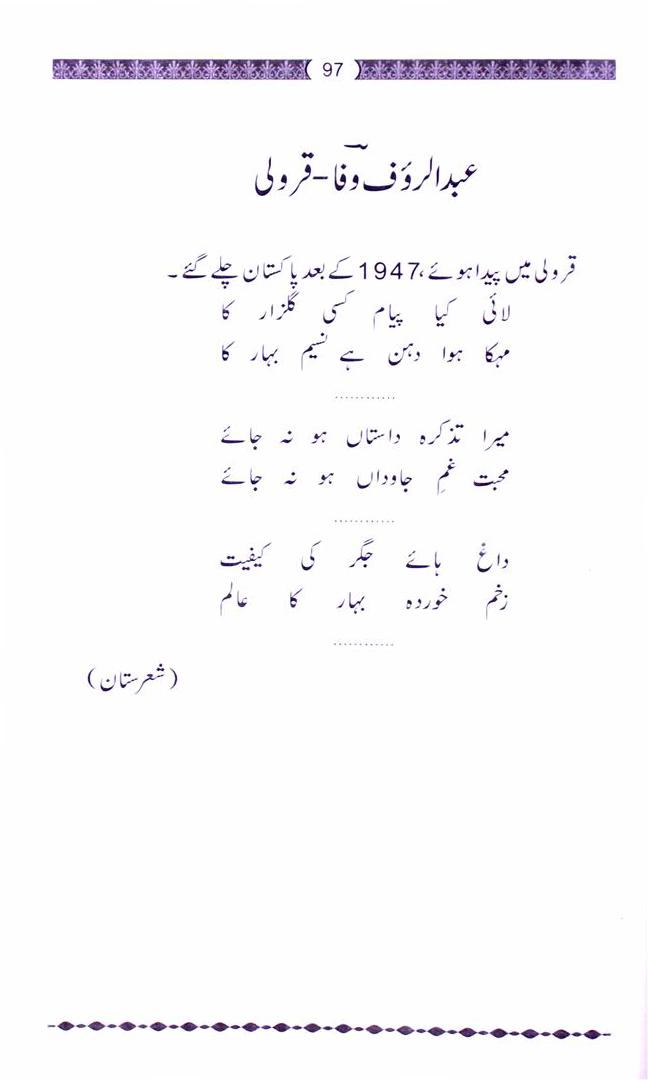 ( 97 )
عبدالرؤف وفا - قرولی
قرولی میں پیدا ہوئے، 1947 کے بعد پاکستان چلے گئے۔
لائی کیا پیام کسی گلزار کا
مہکا ہوا دہن ہے نسیم بہار کا
............
میرا تذکرہ داستاں ہو نہ جائے
محبت غمِ جاوداں ہو نہ جائے
............
داغ ہائے جگر کی کیفیت
زخم خوردہ بہار کا عالم
............
(شعرستان)